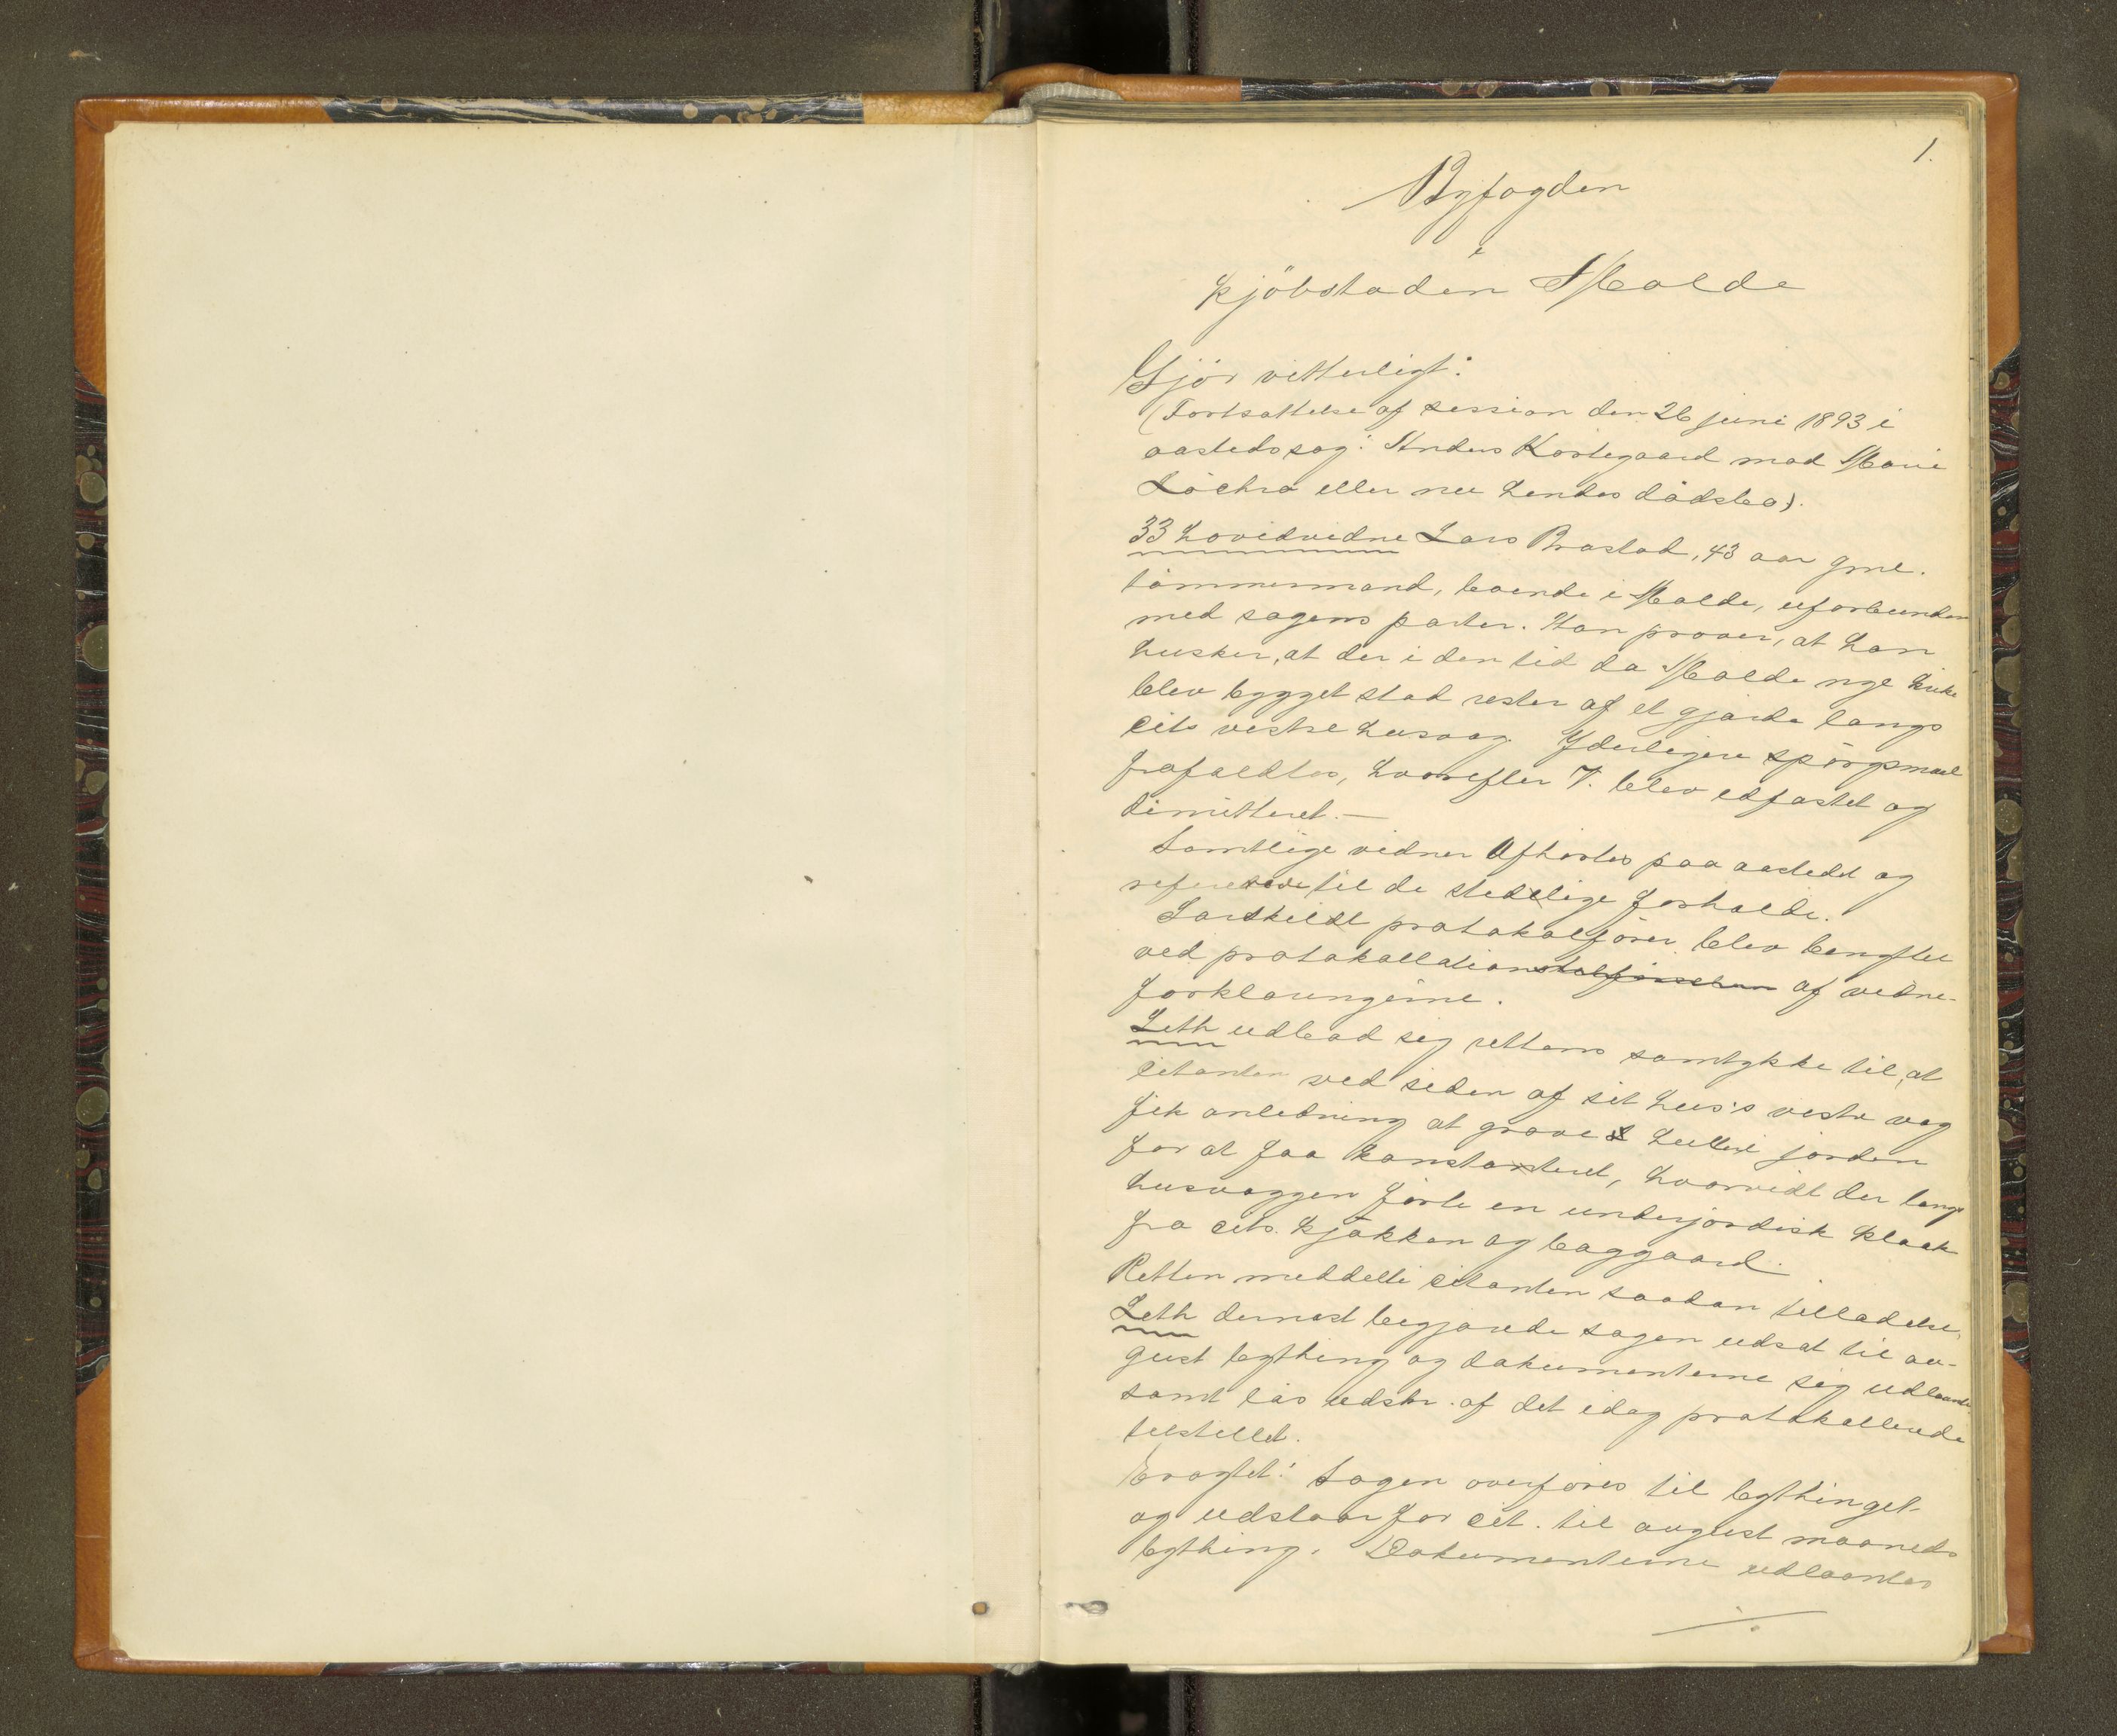 1.
Byfogden
i
kjöbstaden Molde
Gjör vitterligt:
(Fortsættelse af session den 26 juni 1893 i
aastedssag: Anders Kortgaard mod Marie
Löchra eller nu hendes dödsbo).
33 hovedvidne Lars Brastad, 43 aar gml.
tömmermand, boende i Molde, uforbunden
med sagens parter. Han prover, at han
husker, at der i den tid da Molde nye kirke
blev bygget stod rester af et gjærde langs
cits vestre husvæg. Yderligere spörgsmaal
frafaldtes, hvorefter V. blev edfæstet og
dimitteret.—
Samtlige vidner afhörtes paa aastedet og
refererede til de stedlige forholde.
Særskildt protokolförer blev benyttet
ved protokollationen af vidne-
forklaringerne.
Leth udbad sig rettens samtykke til, at
citanten ved siden af sit hus's vestre væg
fik anledning at grave huller i jorden
for at faa konstateret, hvorvidt der langs
husvæggen förte en underjordisk kloak
fra cits. kjökken og baggaard.
Retten meddelte citanten saadan tilladelse.
Leth dernæst begjærede sagen udsat til au-
gust bything og dokumenterne sig udlaante
samt läs udskr. af det idag protokollerede
tilstillet.
Eragtet: Sagen overföres til bythinget
og udstaar for cit. til august maaneds
bything. Dokumenterne udlaantes
./.